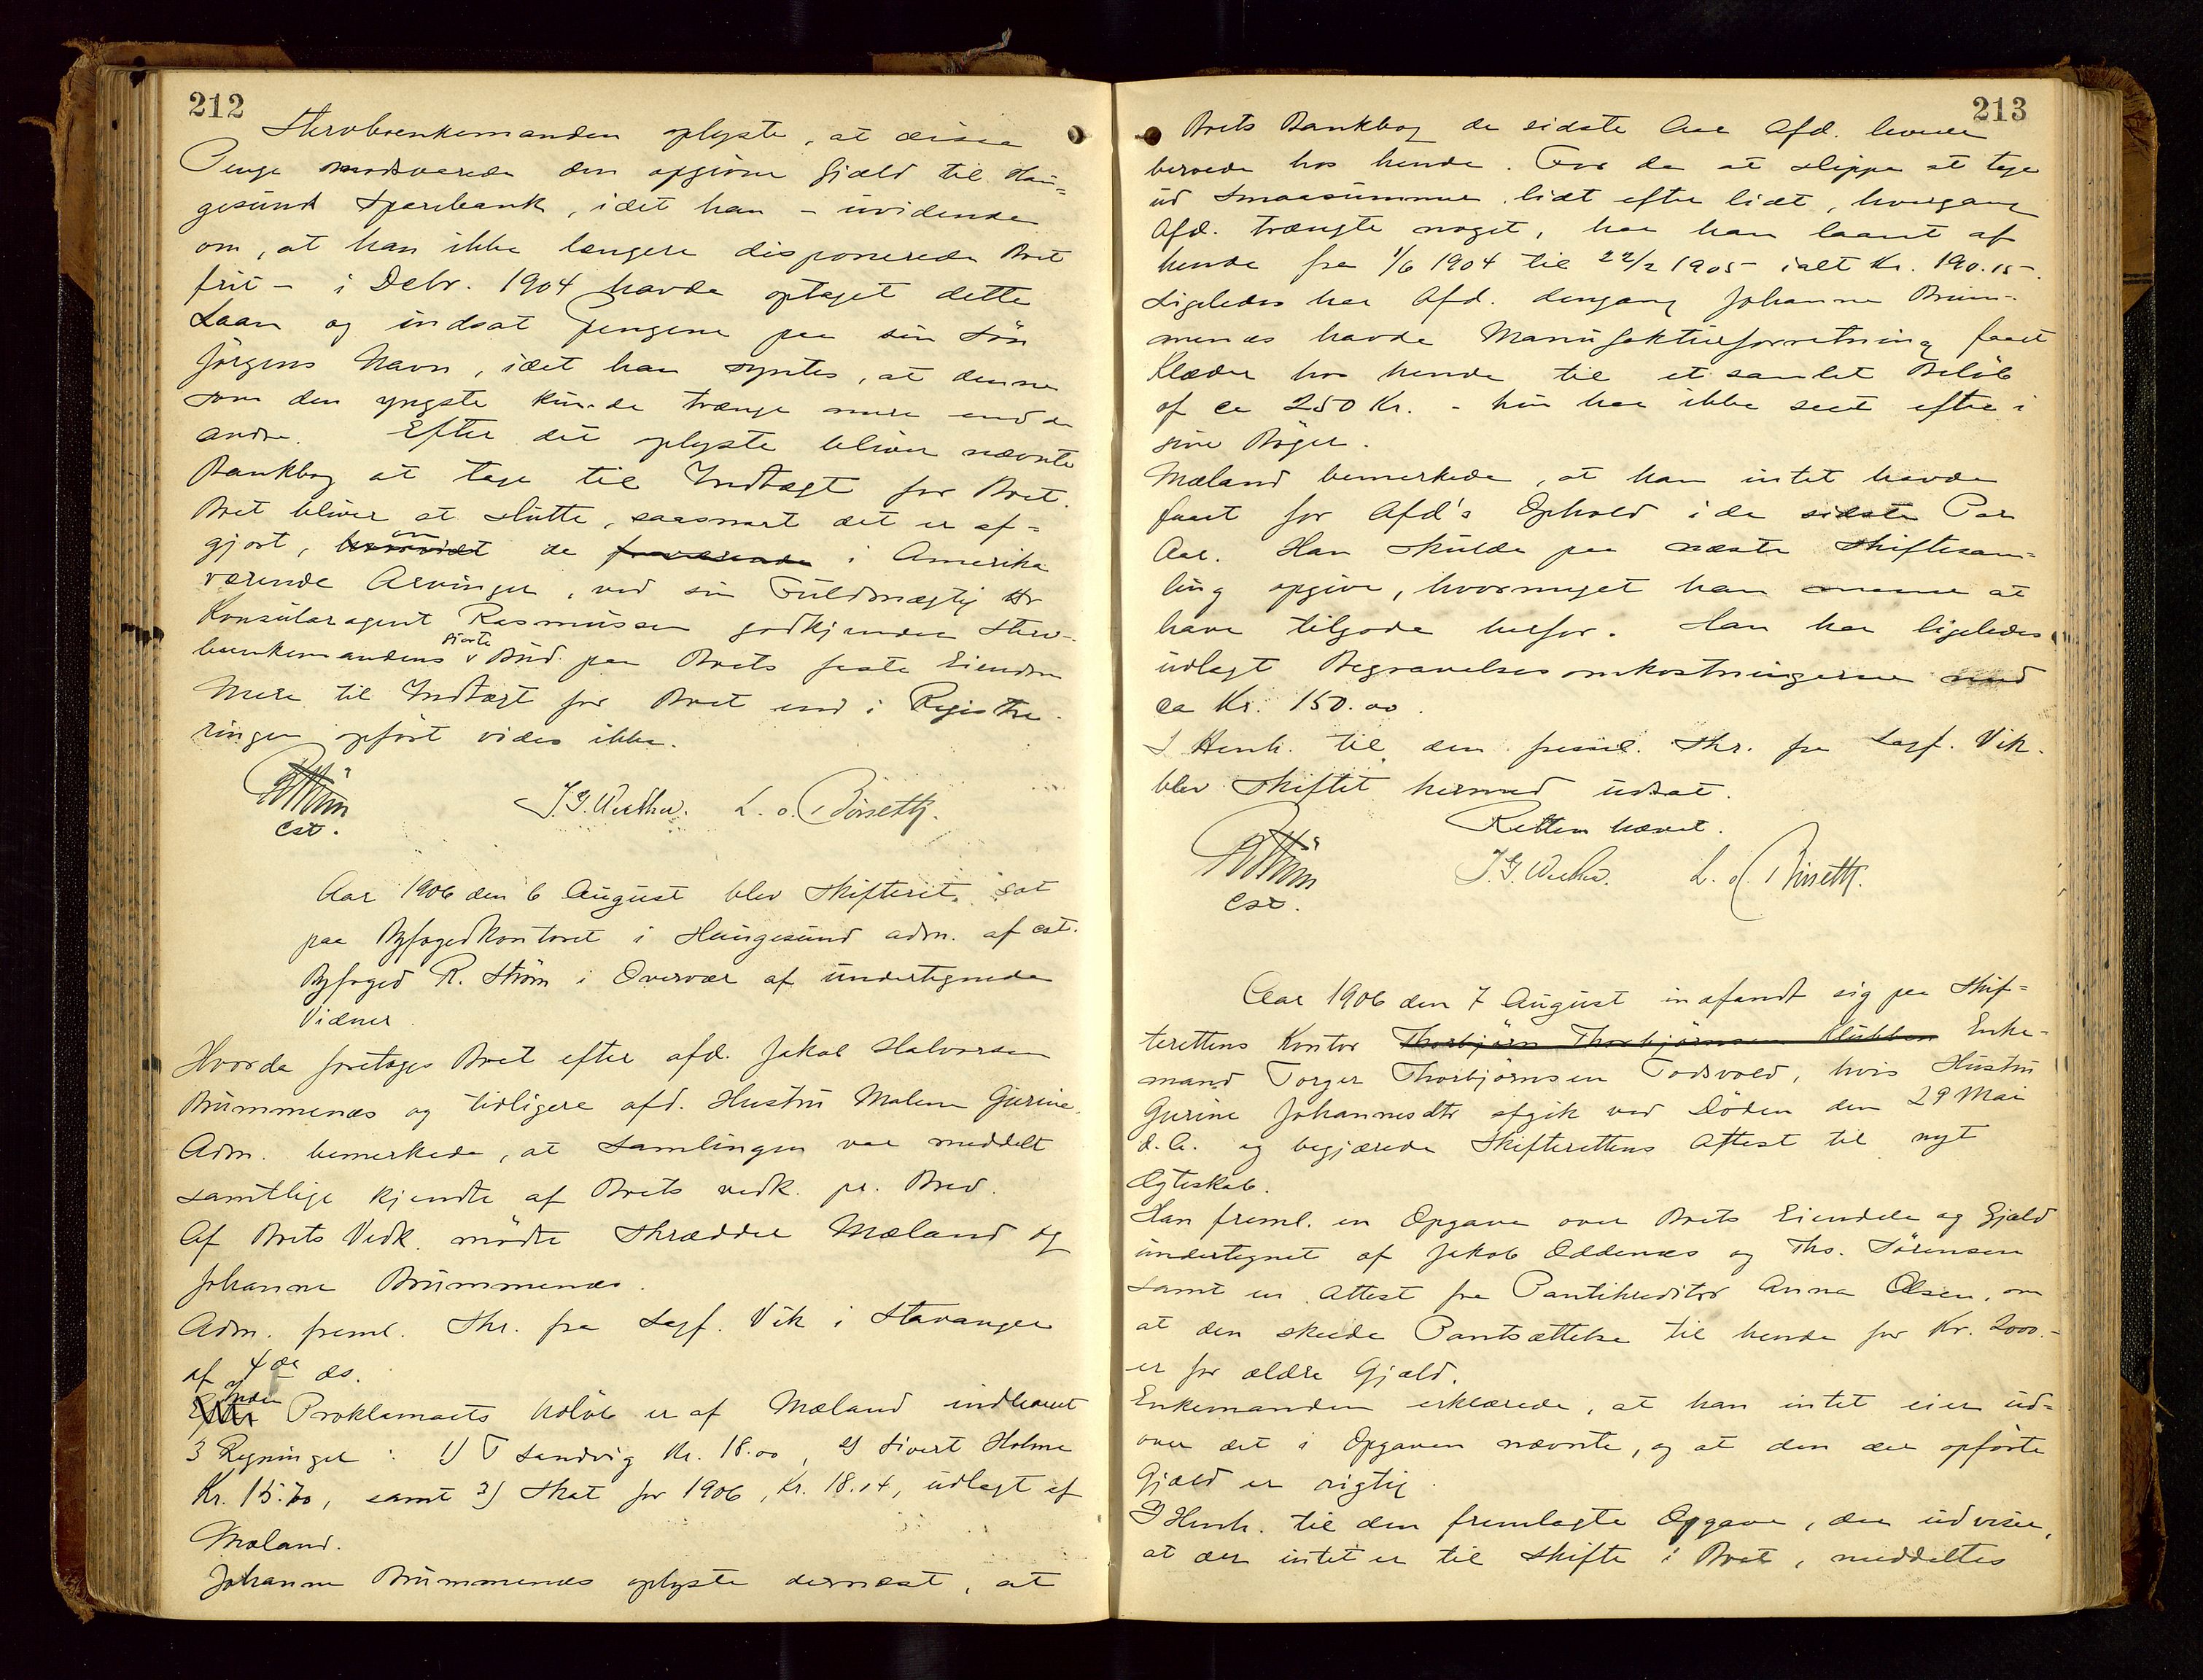 212
Stervboenkemanden oplyste, at disse
Penge modsvarede den opgivne Gjæld til Hau=
gesund Sparebank, idet han - uvidende
om, at han ikke længere disponerede Boet
frit - i Debr. 1904 havde optaget dette
Laan og indsat Pengene paa sin Søn
Jørgens Navn, idet han syntes, at denne
som den yngste kunde trænge mere end de
andre. Efter det oplyste bliver nævnte
Bankbog at tage til Indtægt for Boet.
Boet bliver at slutte, saasnart det er af=
gjort, om de i Amerika
værende Arvinger, ved sin Fuldmægtig Hr
Konsularagent Rasmussen godkjender Stervboenkemandens gjorte Bud paa Boets faste Eiendom
Mere til Indtægt for Boet end i Registre-
ringen opført vides ikke.
R Strøm
cst.
J. G. Wethu. L. o. Børseth.
Aar 1906 den 6 August blev Skifteret sat
paa Byfogedkontoret i Haugesund adm. af cst.
Byfoged R. Strøm i Overvær af undertegnede
Vidner.
Hvorda foretoges Boet efter afd. Jakob Halvorsen
Brummenæs og tidligere afd. Hustru Malene Gurine.
Adm. bemerkede, at Samlingen var meddelt
samtlige kjendte af Boets vedk. pr. Brev.
Af Boets Vedk. mødte Skrædder Mæland og
Johanne Brummenæs.
Adm. freml. Skr. fra Sagf. Vik i Stavanger
af 4de ds.
Inden Proklamaets Udløb er af Mæland indleveret
3 Regninger: 1) T Sandvig Kr. 18.00, 2) Sivert Holme
Kr. 15.70, samt 3) Skat for 1906, Kr. 18.14, udlagt af
Mæland.
Johanne Brummenæs oplyste dernæst, at
213
Boets Bankbog de sidste Aar Afd. levede
beroede hos hende. For da at slippe at tage
ud Smaasummer lidt efter lidt, hvergang
Afd. trængte noget, har han laant af
hende fra 1/6 1904 til 22/2 1905 ialt Kr. 190.15.
Ligeledes har Afd. dengang Johanne Brum-
menæs havde Manufakturforretning faaet
Klæder hos hende til et samlet Beløb
af ca 250 Kr. - hun har ikke seet efter i
sine Bøger.
Mæland bemerkede, at han intet havde
faaet for Afd's Ophold i de sidste Par
Aar. Han skulde paa næste Skiftesam=
ling opgive, hvormeget han mener at
have tilgode herfor. Han har ligeledes
udlagt Begravelsesomkostningerne med
ca Kr. 150.00.
I Henh. til den freml. Skr. fra Sagf. Vik.
blev Skiftet hermed udsat.
Retten hævet.
R Strøm
cst.
J. G. Wethu. L. o. Børseth.
Aar 1906 den 7 August indfandt sig paa Skif=
terettens Kontor Thorbjørn Thorbjørnsen Klubben Enke-
mand Torger Thorbjørnsen Fodsvold, hvis Hustru
Gurine Johannesdtr afgik ved Døden den 29 Mai
d.A. og begjærede Skifterettens Attest til nyt
Ægteskab.
Han freml. en Opgave over Boets Eiendele og Gjæld
undertegnet af Jakob Oddenæs og Ths. Sørensen
samt en Attest fra Pantekreditor Anna Olsen, om
at den skeede Pantsættelse til hende for Kr. 2000.-
er for ældre Gjæld.
Enkemanden erklærede, at han intet eier ud=
over det i Opgaven nævnte, og at den der opførte
Gjæld er rigtig.
I Henh. til den fremlagte Opgave, der udviser,
at der intet er til Skifte i Boet, meddeltes